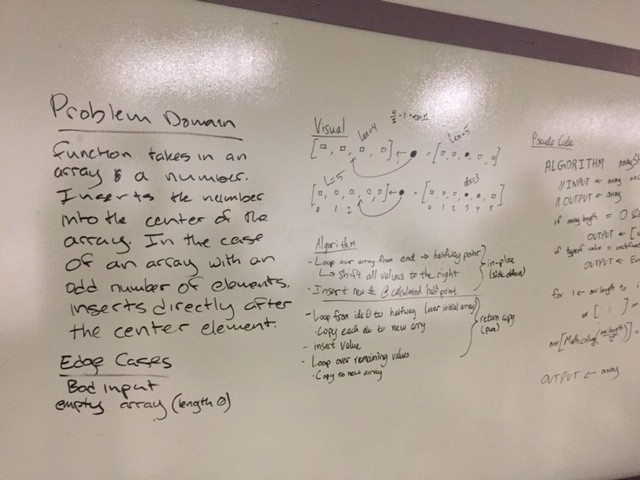 Problem Domain
function takes in an
array & a number.
Inserts the number
into the center of the
array. In the case
of an array with an
odd number of elements,
inserts directly after
the center element.
Edge Cases
Bad input
empty array (length 0)
Visual
Len=4
Len=5
L=5
idx3
0 1 2
0 1 2 3 4 5
Algorithm
- Loop over array from end → halfway point
↳ Shift all values to the right
- Insert new # @ calculated half point
in-place
- Loop from idx 0 to halfway (over initial array)
• Copy each ele to new arry
- insert value
- Loop over remaining values
• Copy to new array
return copy
(pure)
Pseudo Code
ALGORITHM
// INPUT ← array
// OUTPUT ← array
if array.length = 0
OUTPUT ← [
if typeof value = undefined
OUTPUT ←
for i ← arr.length to
arr [
arr[Math.ceil(arr.length/2)] =
OUTPUT ← array